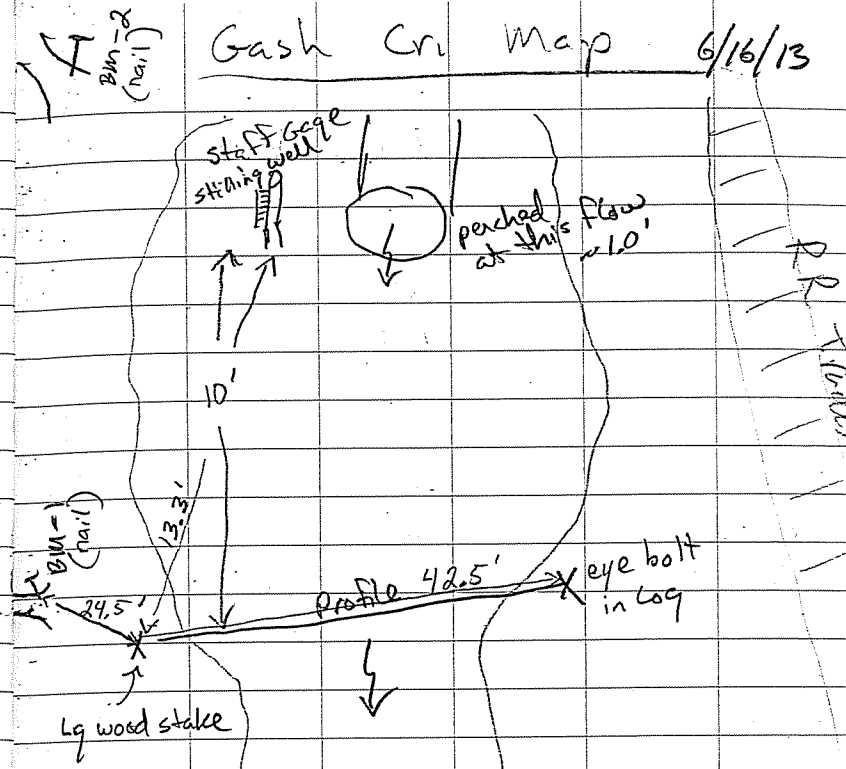 Gash Cr. Map 6/16/13
BM-2
(nail)
staff Gage
stilling well
perched
at this flow
~1.0'
RR
10'
13.3'
BM-1
(nail)
24.5'
Profile 42.5'
eye bolt
in Log
Lg wood stake